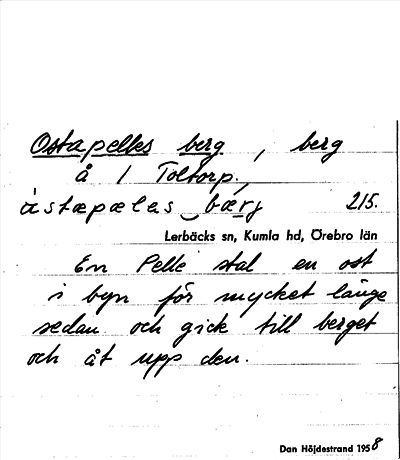 Ostapelles berg, berg
å 1 Toltorp.
ästæpælas bærj 215.
Lerbäcks sn, Kumla hd, Örebro län
En Pelle stal en ost
i byn för mycket länge
sedan och gick till berget
och åt upp den.
Dan Höjdestrand 1958